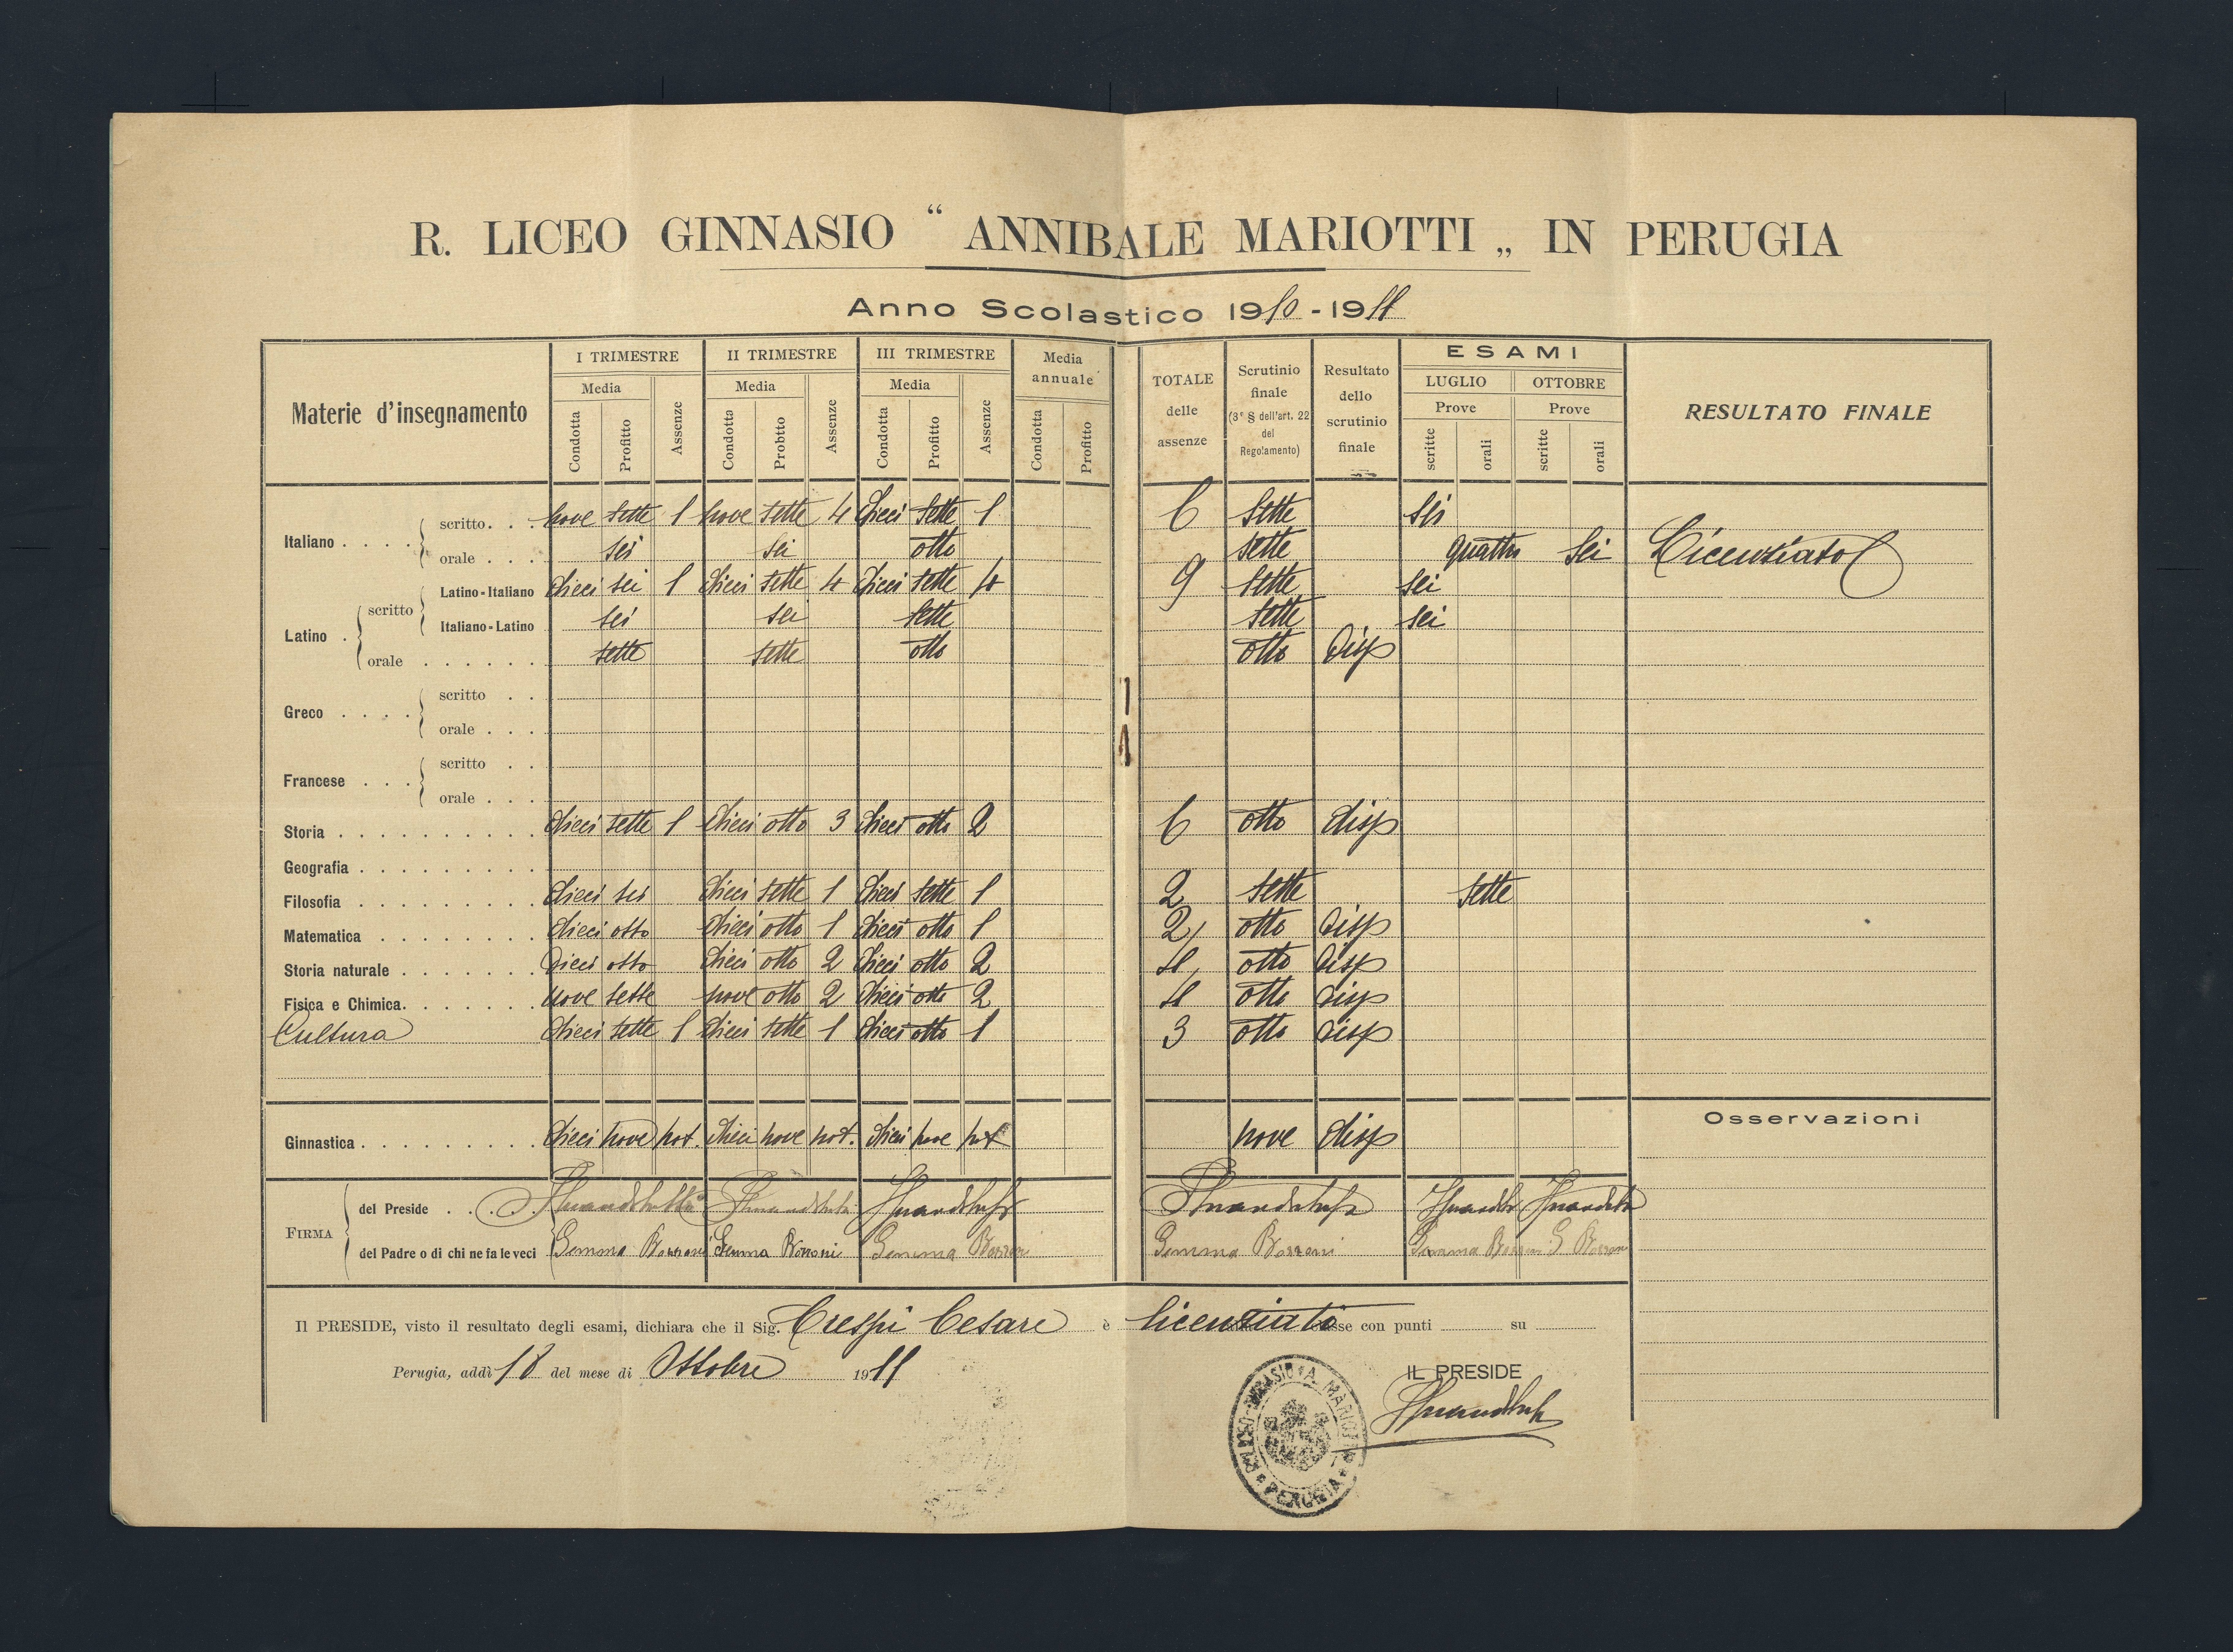 R. LICEO GINNASIO “ ANNIBALE MARIOTTI „ IN PERUGIA
Anno Scolastico 1910 - 1911
Materie d'insegnamento I TRIMESTRE II TRIMESTRE III TRIMESTRE Media annuale TOTALE delle assenze Scrutinio finale (3° § dell'art. 22 del Regolamento) Resultato dello scrutinio finale ESAMI RESULTATO FINALE
Media Media Media LUGLIO OTTOBRE
Prove Prove
Condotta Profitto Assenze Condotta Probtto Assenze Condotta Profitto Assenze Condotta Profitto scritte orali scritte orali
Italiano . . . . scritto. . . nove sette 1 nove sette 4 dieci sette 1 6 sette sei
orale . . . sei sei otto sette quattro sei Licenziato
Latino . scritto Latino-Italiano dieci sei 1 dieci sette 4 dieci sette 4 9 sette sei
Italiano-Latino sei sei sette sette sei
orale . . . . . . sette sette otto otto disp
Greco . . . . scritto . .
orale . . .
Francese . . . scritto . .
orale . . .
Storia . . . . . . . . . . dieci sette 1 dieci otto 3 dieci otto 2 6 otto disp
Geografia . . . . . . . . .
Filosofia . . . . . . . . . dieci sei dieci sette 1 dieci sette 1 2 sette sette
Matematica . . . . . . . . dieci otto dieci otto 1 dieci otto 1 2 otto disp
Storia naturale . . . . . . . dieci otto dieci otto 2 dieci otto 2 4 otto disp
Fisica e Chimica. . . . . . . nove sette nove otto 2 dieci otto 2 4 otto disp
Cultura dieci sette 1 dieci sette 1 dieci otto 1 3 otto disp
Osservazioni
Ginnastica . . . . . . . . . dieci nove not. dieci nove not. dieci nove not nove disp
FIRMA del Preside . . . .
del Padre o di chi ne fa le veci Gemma Borroni Gemma Borroni Gemma Borroni Gemma Borroni Gemma Borroni G Borroni
Il PRESIDE, visto il resultato degli esami, dichiara che il Sig. Crespi Cesare è licenziato classe con punti su
Perugia, addì 18 del mese di Ottobre 1911
IL PRESIDE
A. MARIOTTI
PERUGIA